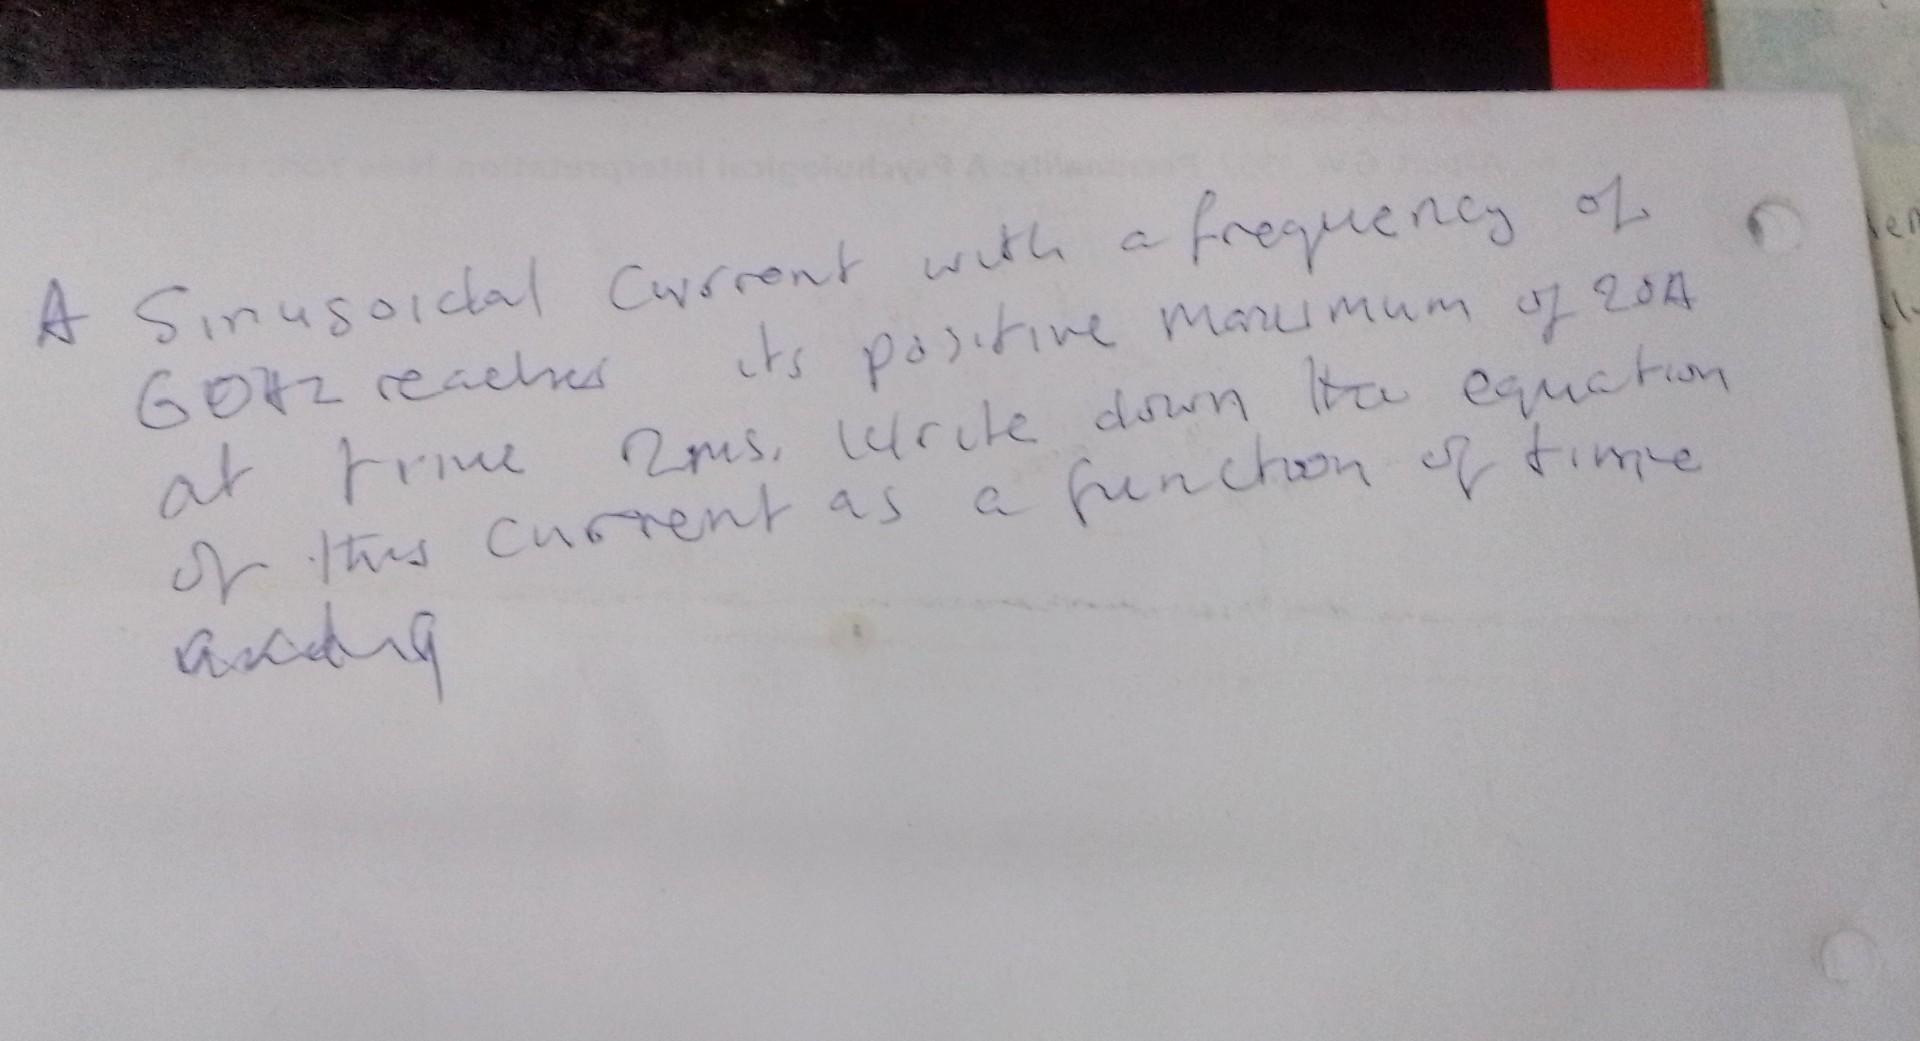 A Sinusoidal Current with a frequency of
60Hz reaches its positive maximum of 20A
at time 2ms. Write down the equation
of this current as a function of time